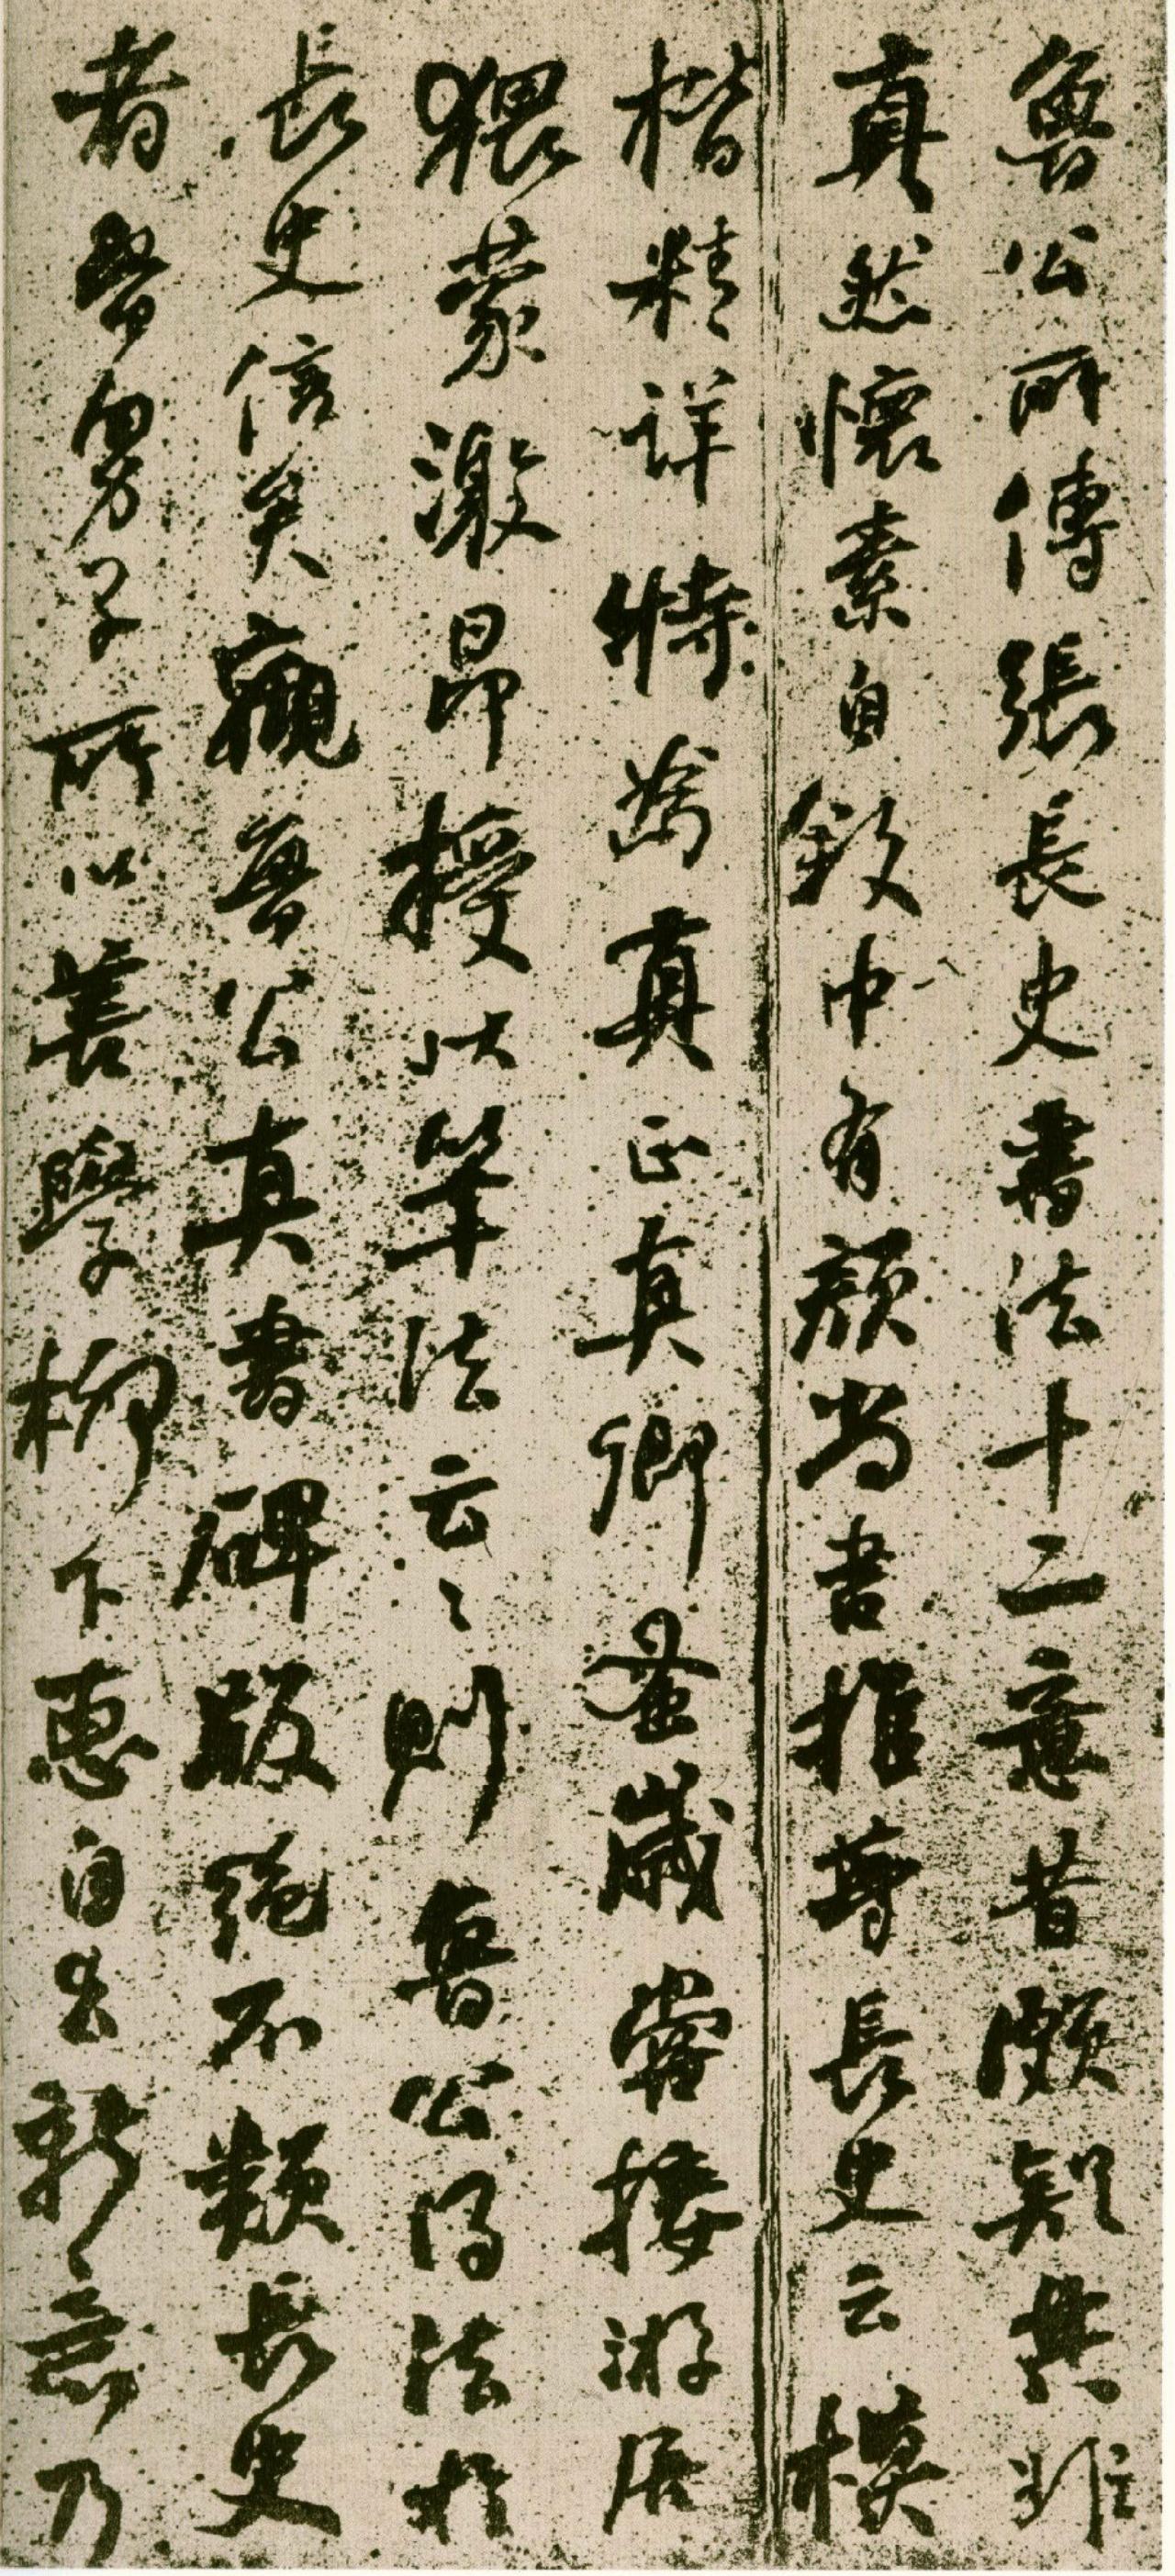 魯公所傳張長史書法十二意昔頗疑其雖
真然懷素自敘中有顏尚書推尊長史云模
楷精詳特為真正真卿蚤歲嘗接游居
猥蒙激昂授以筆法云云則魯公得法於
長史信矣觀魯公真書碑版絕不類長史
者魯男子所以善學柳下惠自出新意乃